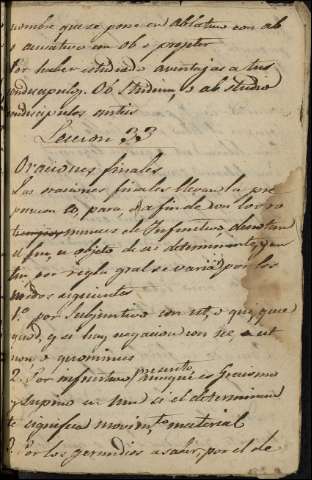 nombre que se pone en Ablativo con ab
o acusativo con ob o propter
Por haber estudiado aventajas a tus
condiscipulos. Ob studium, o ab studio
condiscipulos antis
Leccion 33
Oraciones finales
Las oraciones finales llevan la pre
posicion a, para, o a fin de con los ro
mances el Infinitivo denotan
el fin, u objeto de su determinante, y en
latin por regla gral se varia por los
modos siguientes
1.º por subjuntivo con ut, o quo, que
quod, y si hay negacion con ne, ut
non o quominus
2. Por infinitivo presente, aunque es Grecismo
y supino en um si el determinan
te significa movim.to material
3. Por los gerundios a saber, por el de